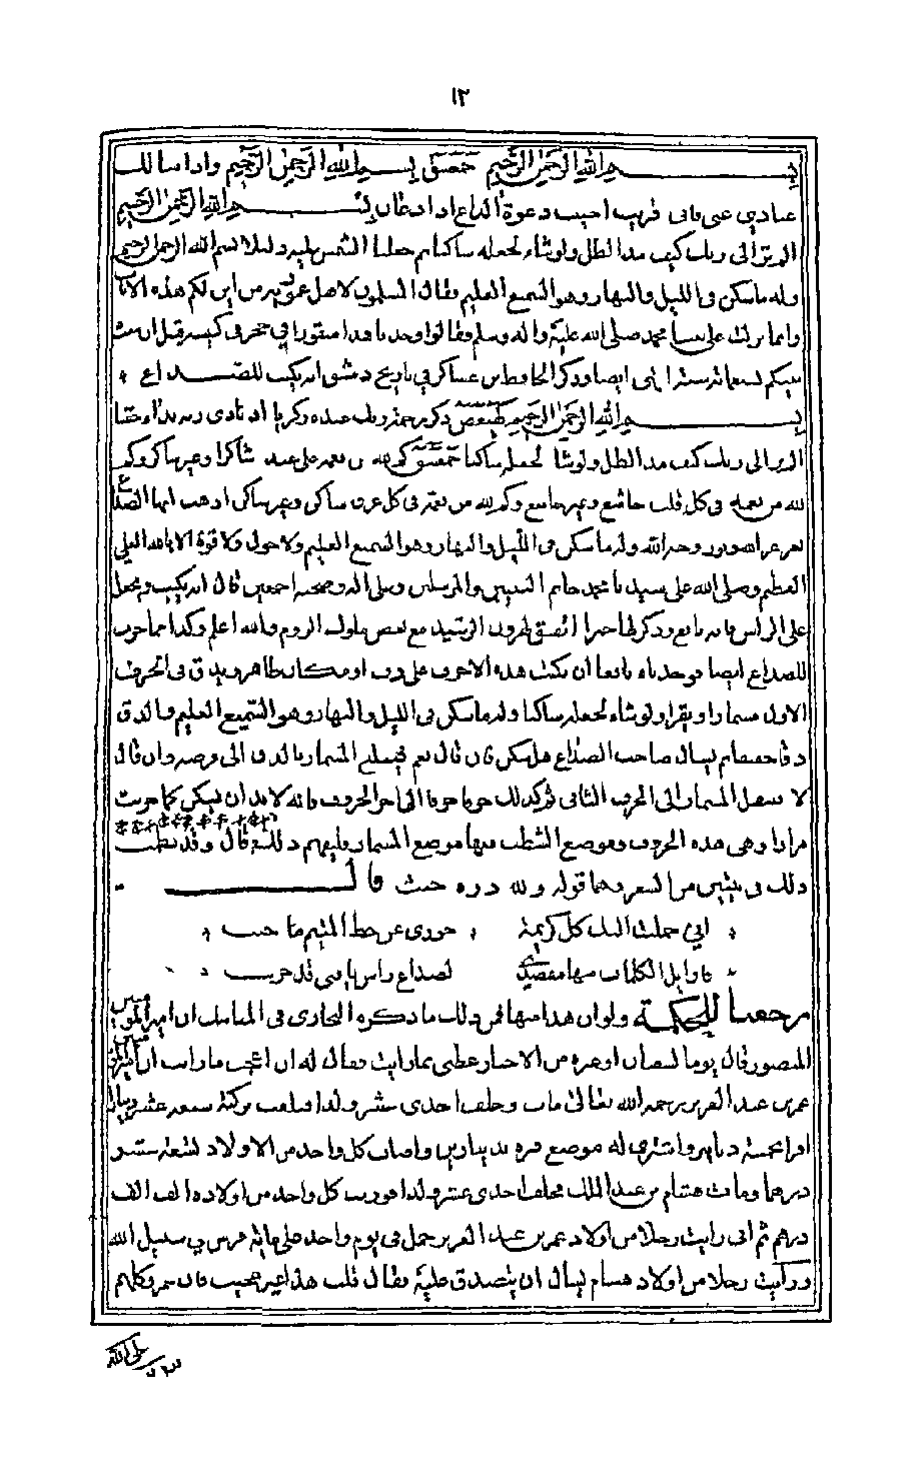 ١٢
بسم الله الرحمن الرحيم حمعسق بسم الله الرحمن الرحيم واذا سالك
عبادي عني فاني قريب اجيب دعوة الداع اذا دعان بسم الله الرحمن الرحيم
الم تر الى ربك كيف مد الظل ولو شاء لجعله ساكنا ثم جعلنا الشمس عليه دليلا بسم الله الرحمن الرحيم
وله ما سكن في الليل والنهار وهو السميع العليم فقال المسلمون لاهل عمورية من اين لكم هذه الايات
وانما نزلت على نبينا محمد صلى الله عليه واله وسلم فقالوا وجدناها منقورا في حجر في كنيسة قبل ان يبعث
نبيكم بسبعمائة سنة ايضا وذكر الحافظ بن عساكر في تاريخ دمشق انه يكتب للصداع
بسم الله الرحمن الرحيم كهيعص ذكر رحمة ربك عبده زكريا اذ نادى ربه نداء خفيا
الم تر الى ربك كيف مد الظل ولو شا لجعله ساكنا حمعسق كم لله من نعمة على عبد شاكر وغير شاكر وكم
لله من نعمة في كل قلب خاشع وغير خاشع وكم لله من نعمة في كل عرق ساكن وغير ساكن اذهب ايها الصداع
بعز عز الله وبنور وجه الله وله ما سكن في الليل والنهار وهو السميع العليم ولا حول ولا قوة الا بالله العلي
العظيم وصلى الله على سيدنا محمد خاتم النبيين والمرسلين وعلى اله وصحبه اجمعين قال انه يكتب ويجعل
على الراس فانه نافع وذكر لها خبرا اتفق لهرون الرشيد مع بعض ملوك الروم والله اعلم وكذا مما جرب
للصداع ايضا فوجدناه نافعا ان تكتب هذه الاحرف على ورق او مكان طاهر ويدق في الحرف
الاول مسمارا ويقرا ولو شاء لجعله ساكنا وله ما سكن في الليل والنهار وهو السميع العليم والدق
دقا خفيفا ثم يسال صاحب الصداع هل سكن فان قال نعم فيصلح المسمار بالدق الى قرصه وان قال
لا نقل المسمار الى الحرف الثاني ثم كذلك حرفا حرفا الى اخر الحروف فانه لا بد ان يسكن كما جربت
مرارا وهي هذه الحروف وموضع النقط منها موضع المسمار وليفهم ذلك قال وقد نظمت
ذلك في بيتين من الشعر وهما قوله ولله دره حيث قال
اني حملت اليك كل كريمة حوري عن حظ المتيم ما حبت
فاوايل الكلمات منها مقصدي لصداع راس يا متى قد جربت
مرجعنا للحكمة ولو ان هذا منها فمن ذلك ما ذكره البخاري في ان امير المومنين
المنصور قال يوما لبعض او غيره من الاخيار عظني بما رايت فقال له ان اعجب ما رايت ان امير المومنين
عمر بن عبد العزيز رحمه الله تعالى مات وخلف احدى عشر ولدا وبلغت تركته سبعة عشر دينارا
بخمسة دنانير واشترى له موضع قبره بدينارين واصاب كل واحد من الاولاد تسعة عشر
درهما ومات هشام بن عبد الملك فخلف احدى عشر ولدا فورث كل واحد من اولاده الف الف
درهم ثم اني رايت رجلا من اولاد عمر بن عبد العزيز حمل في يوم واحد على مائة فرس في سبيل الله
ورايت رجلا من اولاد هشام يسال ان يتصدق عليه فقال قلت هذا غير عجيب فان عمر وكلهم